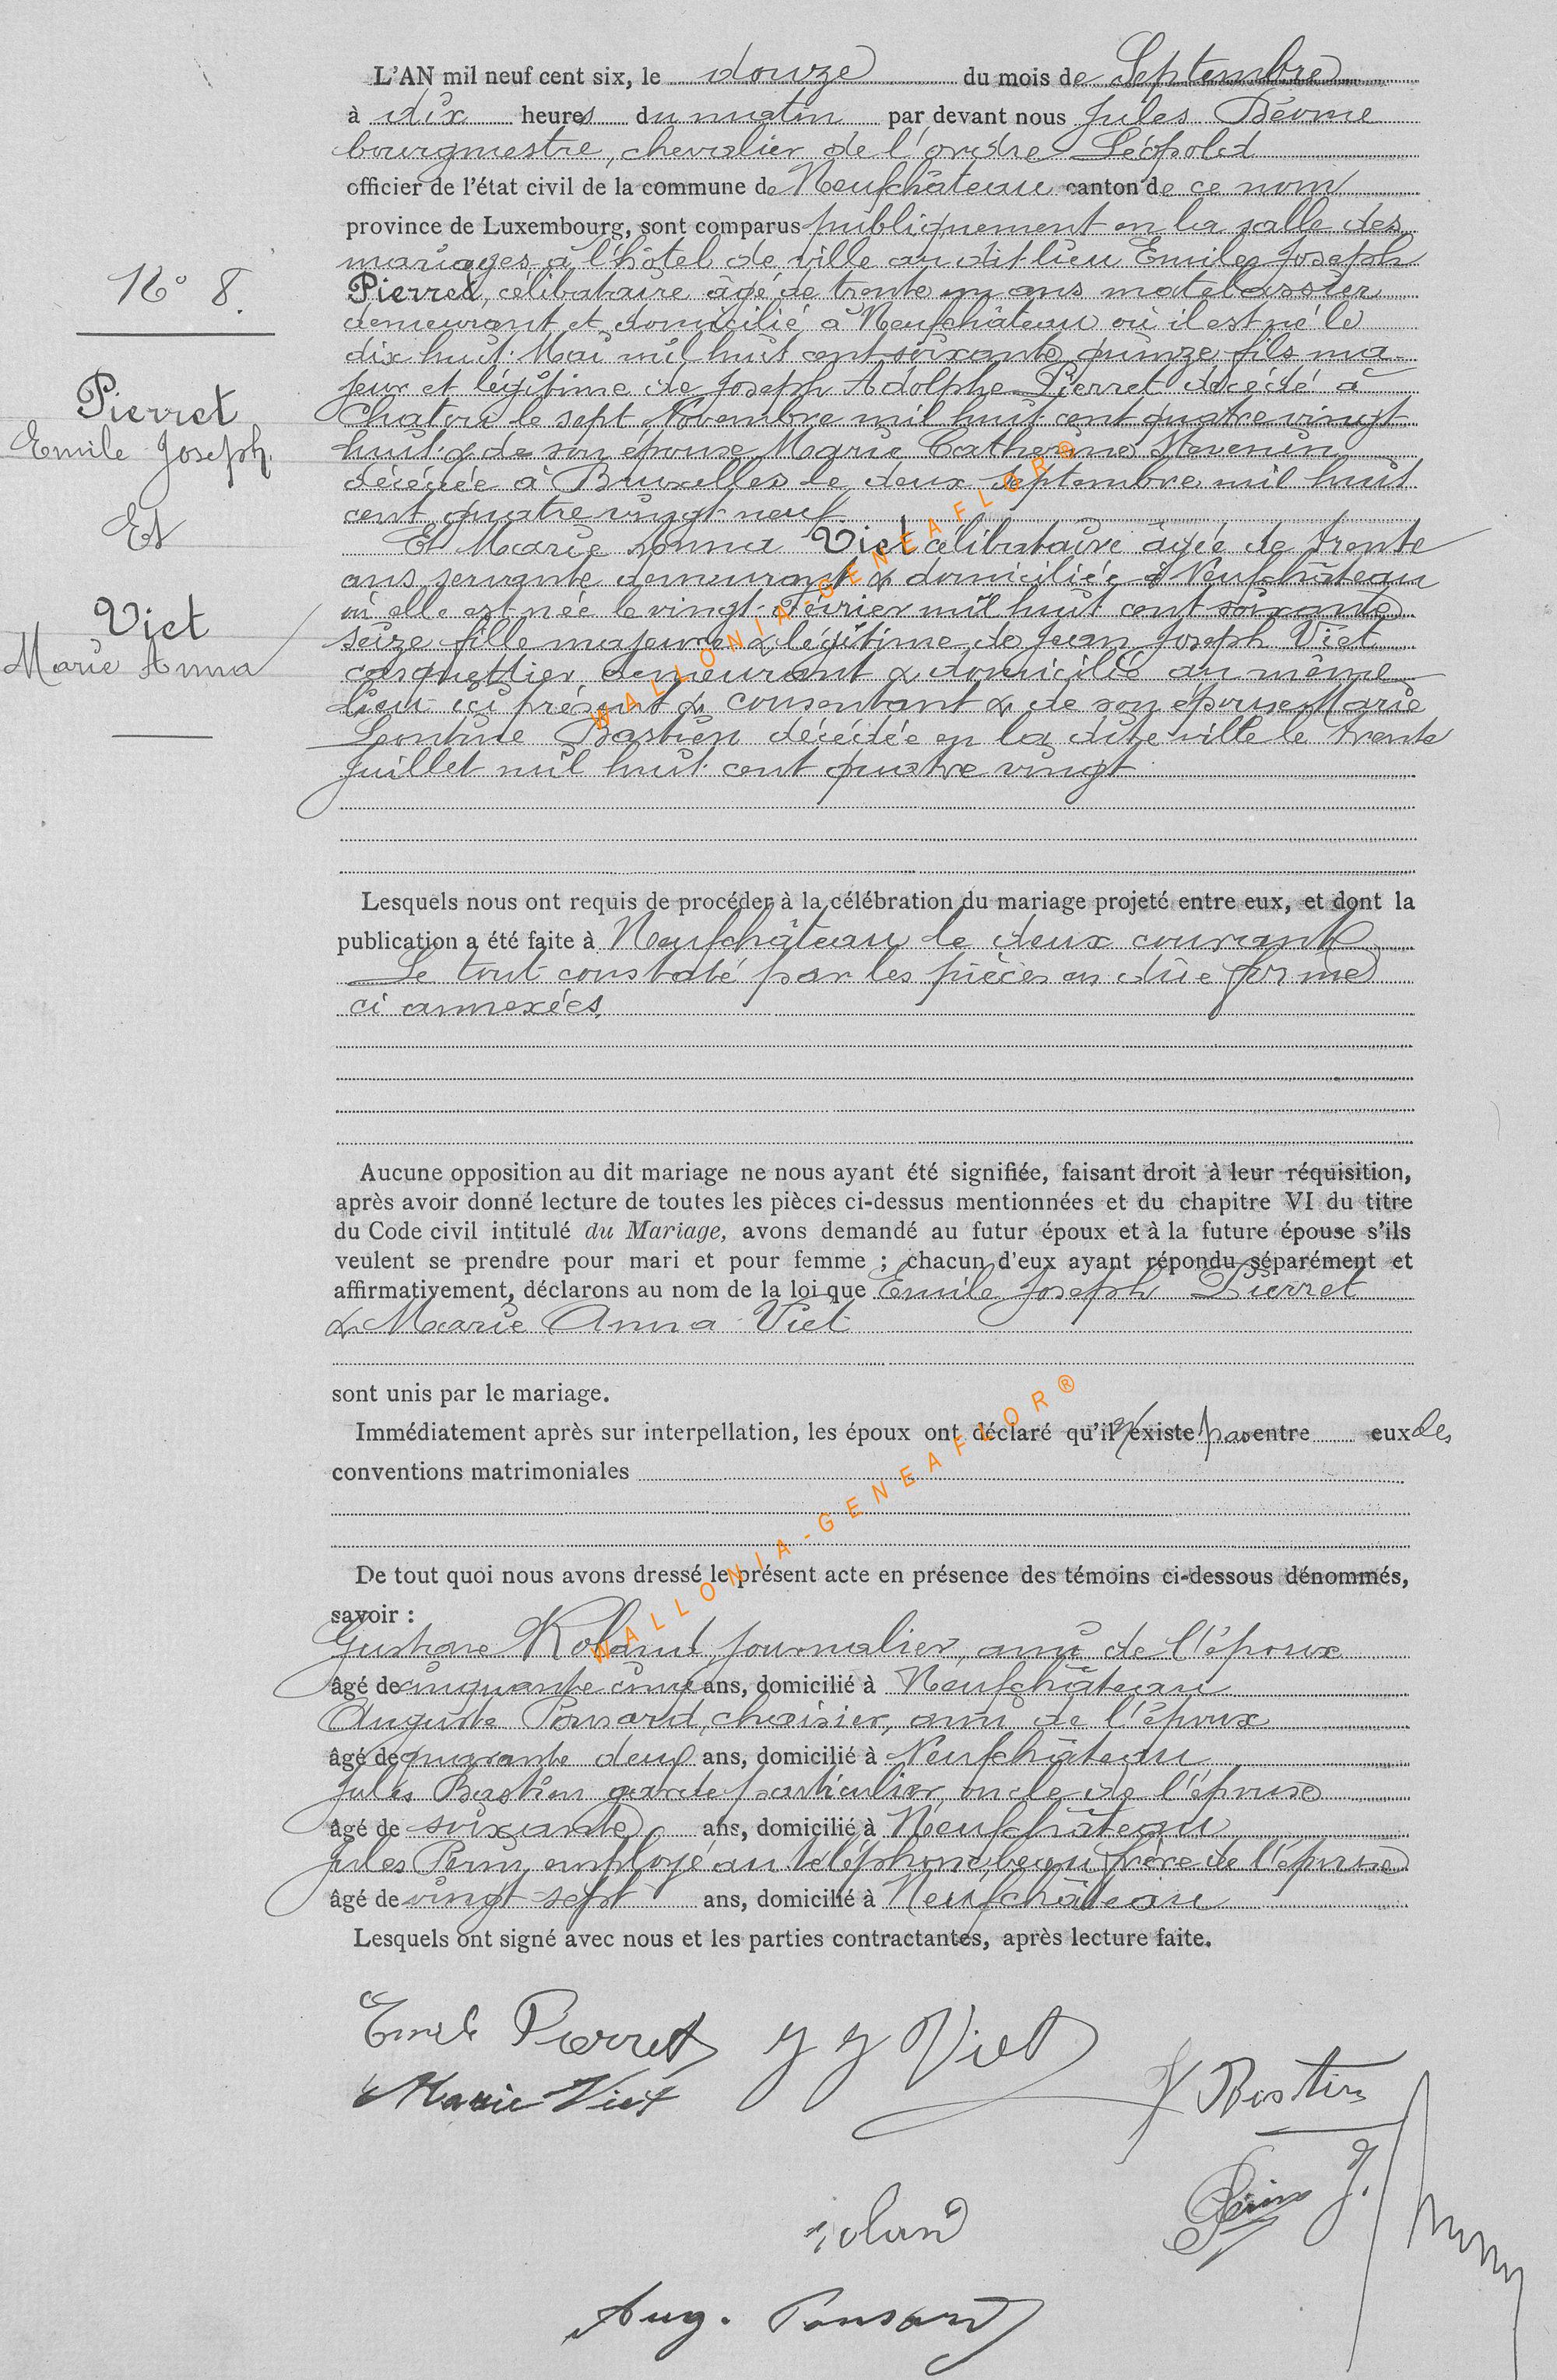 L'AN mil neuf cent six, le douze du mois de Septembre
à dix heures du matin par devant nous Jules
bourgmestre, chevalier de l'ordre Léopold
officier de l'état civil de la commune de Neufchâteau canton de ce nom
province de Luxembourg, sont comparus publiquement en la salle des
mariages à l'hôtel de ville au dit lieu Emile Joseph
N° 8.
Pierret, célibataire âgé de trente un ans matelassier
demeurant et domicilié à Neufchâteau où il est né le
dix huit Mai mil huit cent soixante quinze fils ma-
jeur et légitime de Joseph Adolphe Pierret décédé à
Pierret
Emile Joseph
Et
Viet
Marie Anna
le sept Novembre mil huit cent quatre vingt
huit & de son épouse Marie Catherine
décédée à Bruxelles le deux Septembre mil huit
cent quatre vingt neuf
Et Marie Anna Viet célibataire âgée de trente
ans servante demeurant & domiciliée à Neufchâteau
où elle est née le vingt Février mil huit cent soixante
seize fille majeure & légitime de Jean Joseph Viet
casquettier demeurant & domicilié au même
lieu ici présent & consentant & de son épouse Marie
Léontine Bastien décédée en la dite ville le trente
Juillet mil huit cent quatre vingt
Lesquels nous ont requis de procéder à la célébration du mariage projeté entre eux, et dont la
publication a été faite à Neufchâteau le deux courant
Le tout constaté par les pièces en dûe forme
ci annexées.
Aucune opposition au dit mariage ne nous ayant été signifiée, faisant droit à leur réquisition,
après avoir donné lecture de toutes les pièces ci-dessus mentionnées et du chapitre VI du titre
du Code civil intitulé du Mariage, avons demandé au futur époux et à la future épouse s'ils
veulent se prendre pour mari et pour femme ; chacun d'eux ayant répondu séparément et
affirmativement, déclarons au nom de la loi que Emile Joseph Pierret
& Marie Anna Viet
sont unis par le mariage.
Immédiatement après sur interpellation, les époux ont déclaré qu'il n'existe pas entre eux des
conventions matrimoniales
De tout quoi nous avons dressé le présent acte en présence des témoins ci-dessous dénommés,
savoir :
Gustave Roland, journalier, ami de l'époux
âgé de cinquante cinq ans, domicilié à Neufchâteau
Auguste Ponsard, chaisier, ami de l'époux
âgé de quarante deux ans, domicilié à Neufchâteau
Jules Bastien garde particulier, oncle de l'épouse
âgé de soixante ans, domicilié à Neufchâteau
Jules employé au téléphone, beau frère de l'épouse
âgé de vingt-sept ans, domicilié à Neufchâteau
Lesquels ont signé avec nous et les parties contractantes, après lecture faite.
Emile Pierret J J Viet
Marie Viet
J Bastien
Roland
Aug. Ponsard
WALLONIA-GENEAFLOR®
WALLONIA-GENEAFLOR®